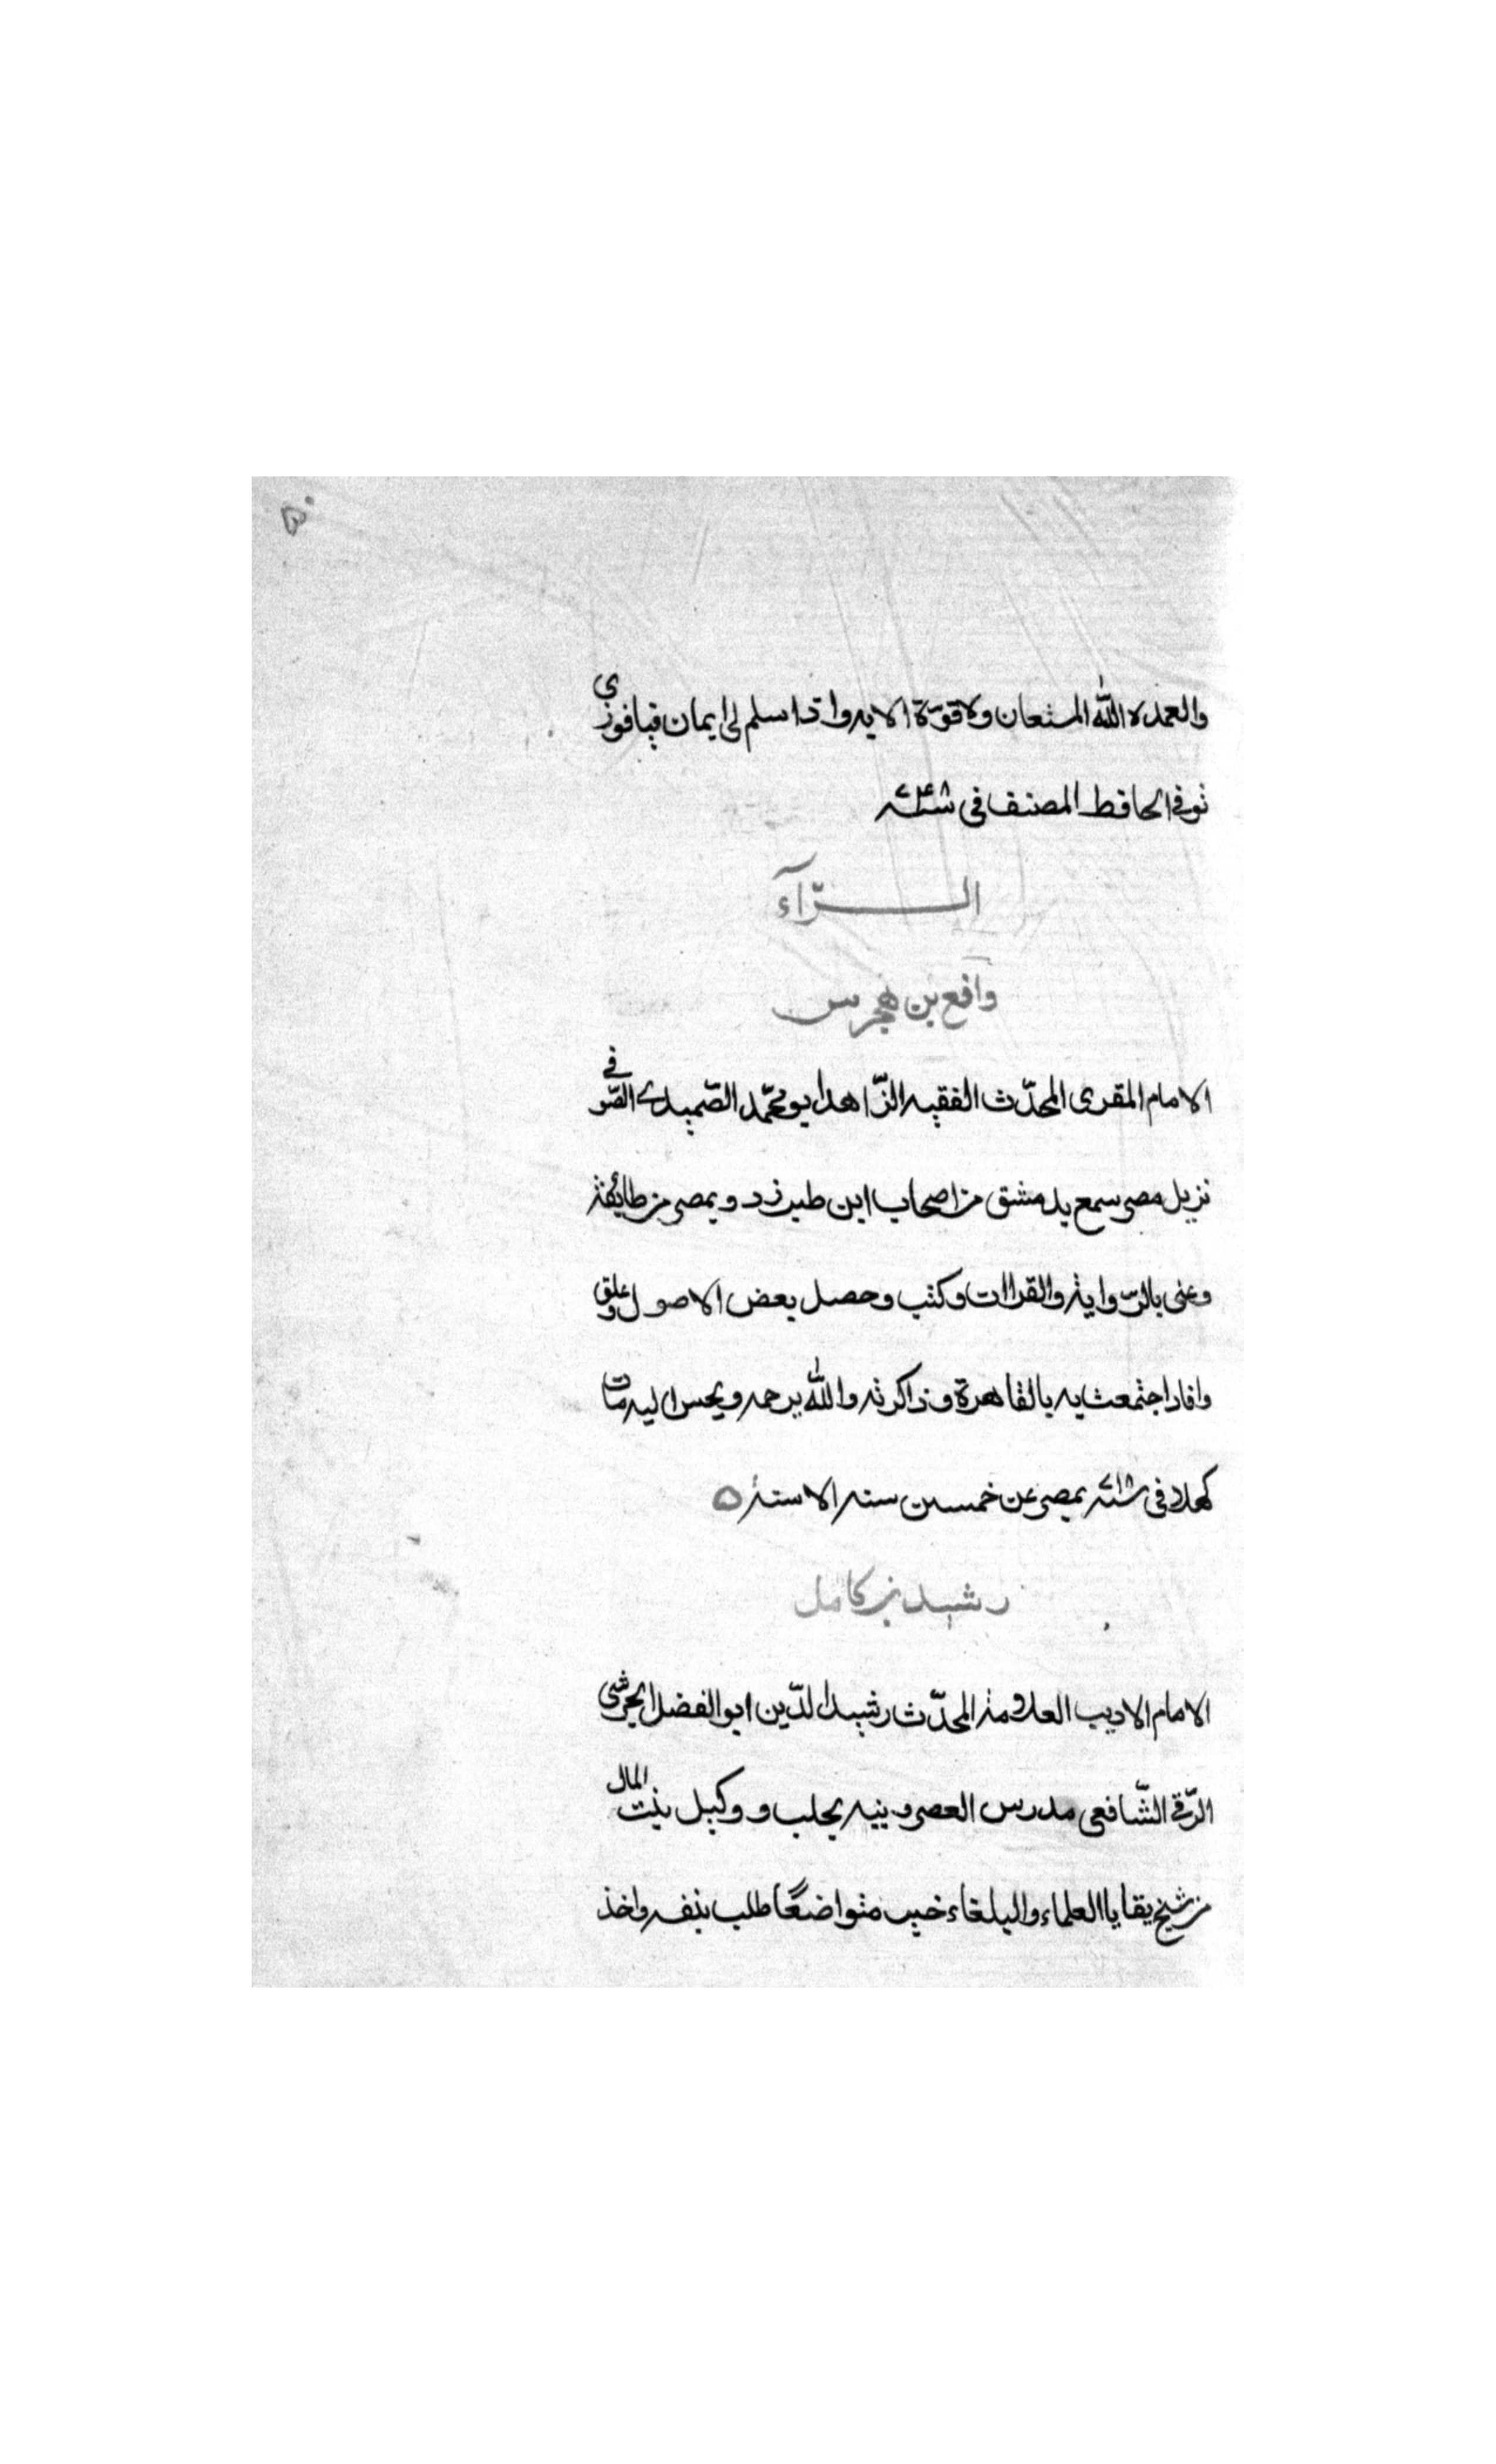 والعمده الله المستعان ولا قوّة الا به واذا سلم لى ايمان فيا فوزى
توفى الحافظ المصنف فى سنة ٧٤٨
الرّآء
رافع بن هجرس
الامام المقرى المحدّث الفقيه الزّاهد ابو محمّد الصّميدى الصّوفى
نزيل مصر سمع بدمشق من اصحاب ابن طبرزد وبمصر من طائفة
وعنى بالرّواية والقراات وكتب وحصل بعض الاصول وعلق
وافاد اجتمعت به بالقاهرة وذاكرته والله يرحمه ويحسن اليه مات
كهلا فى سنة ٧١٨ بمصر عن خمسين سنة الا سنة ه
رشيد بن كامل
الامام الاديب العلامة المحدّث رشيد الدّين ابو الفضل الحرشى
الرّقى الشّافعى مدرس العصرونية بحلب ووكيل بيت المال
من شيخ بقايا العلماء والبلغاء خير متواضعًا طلب بنفسه واخذ